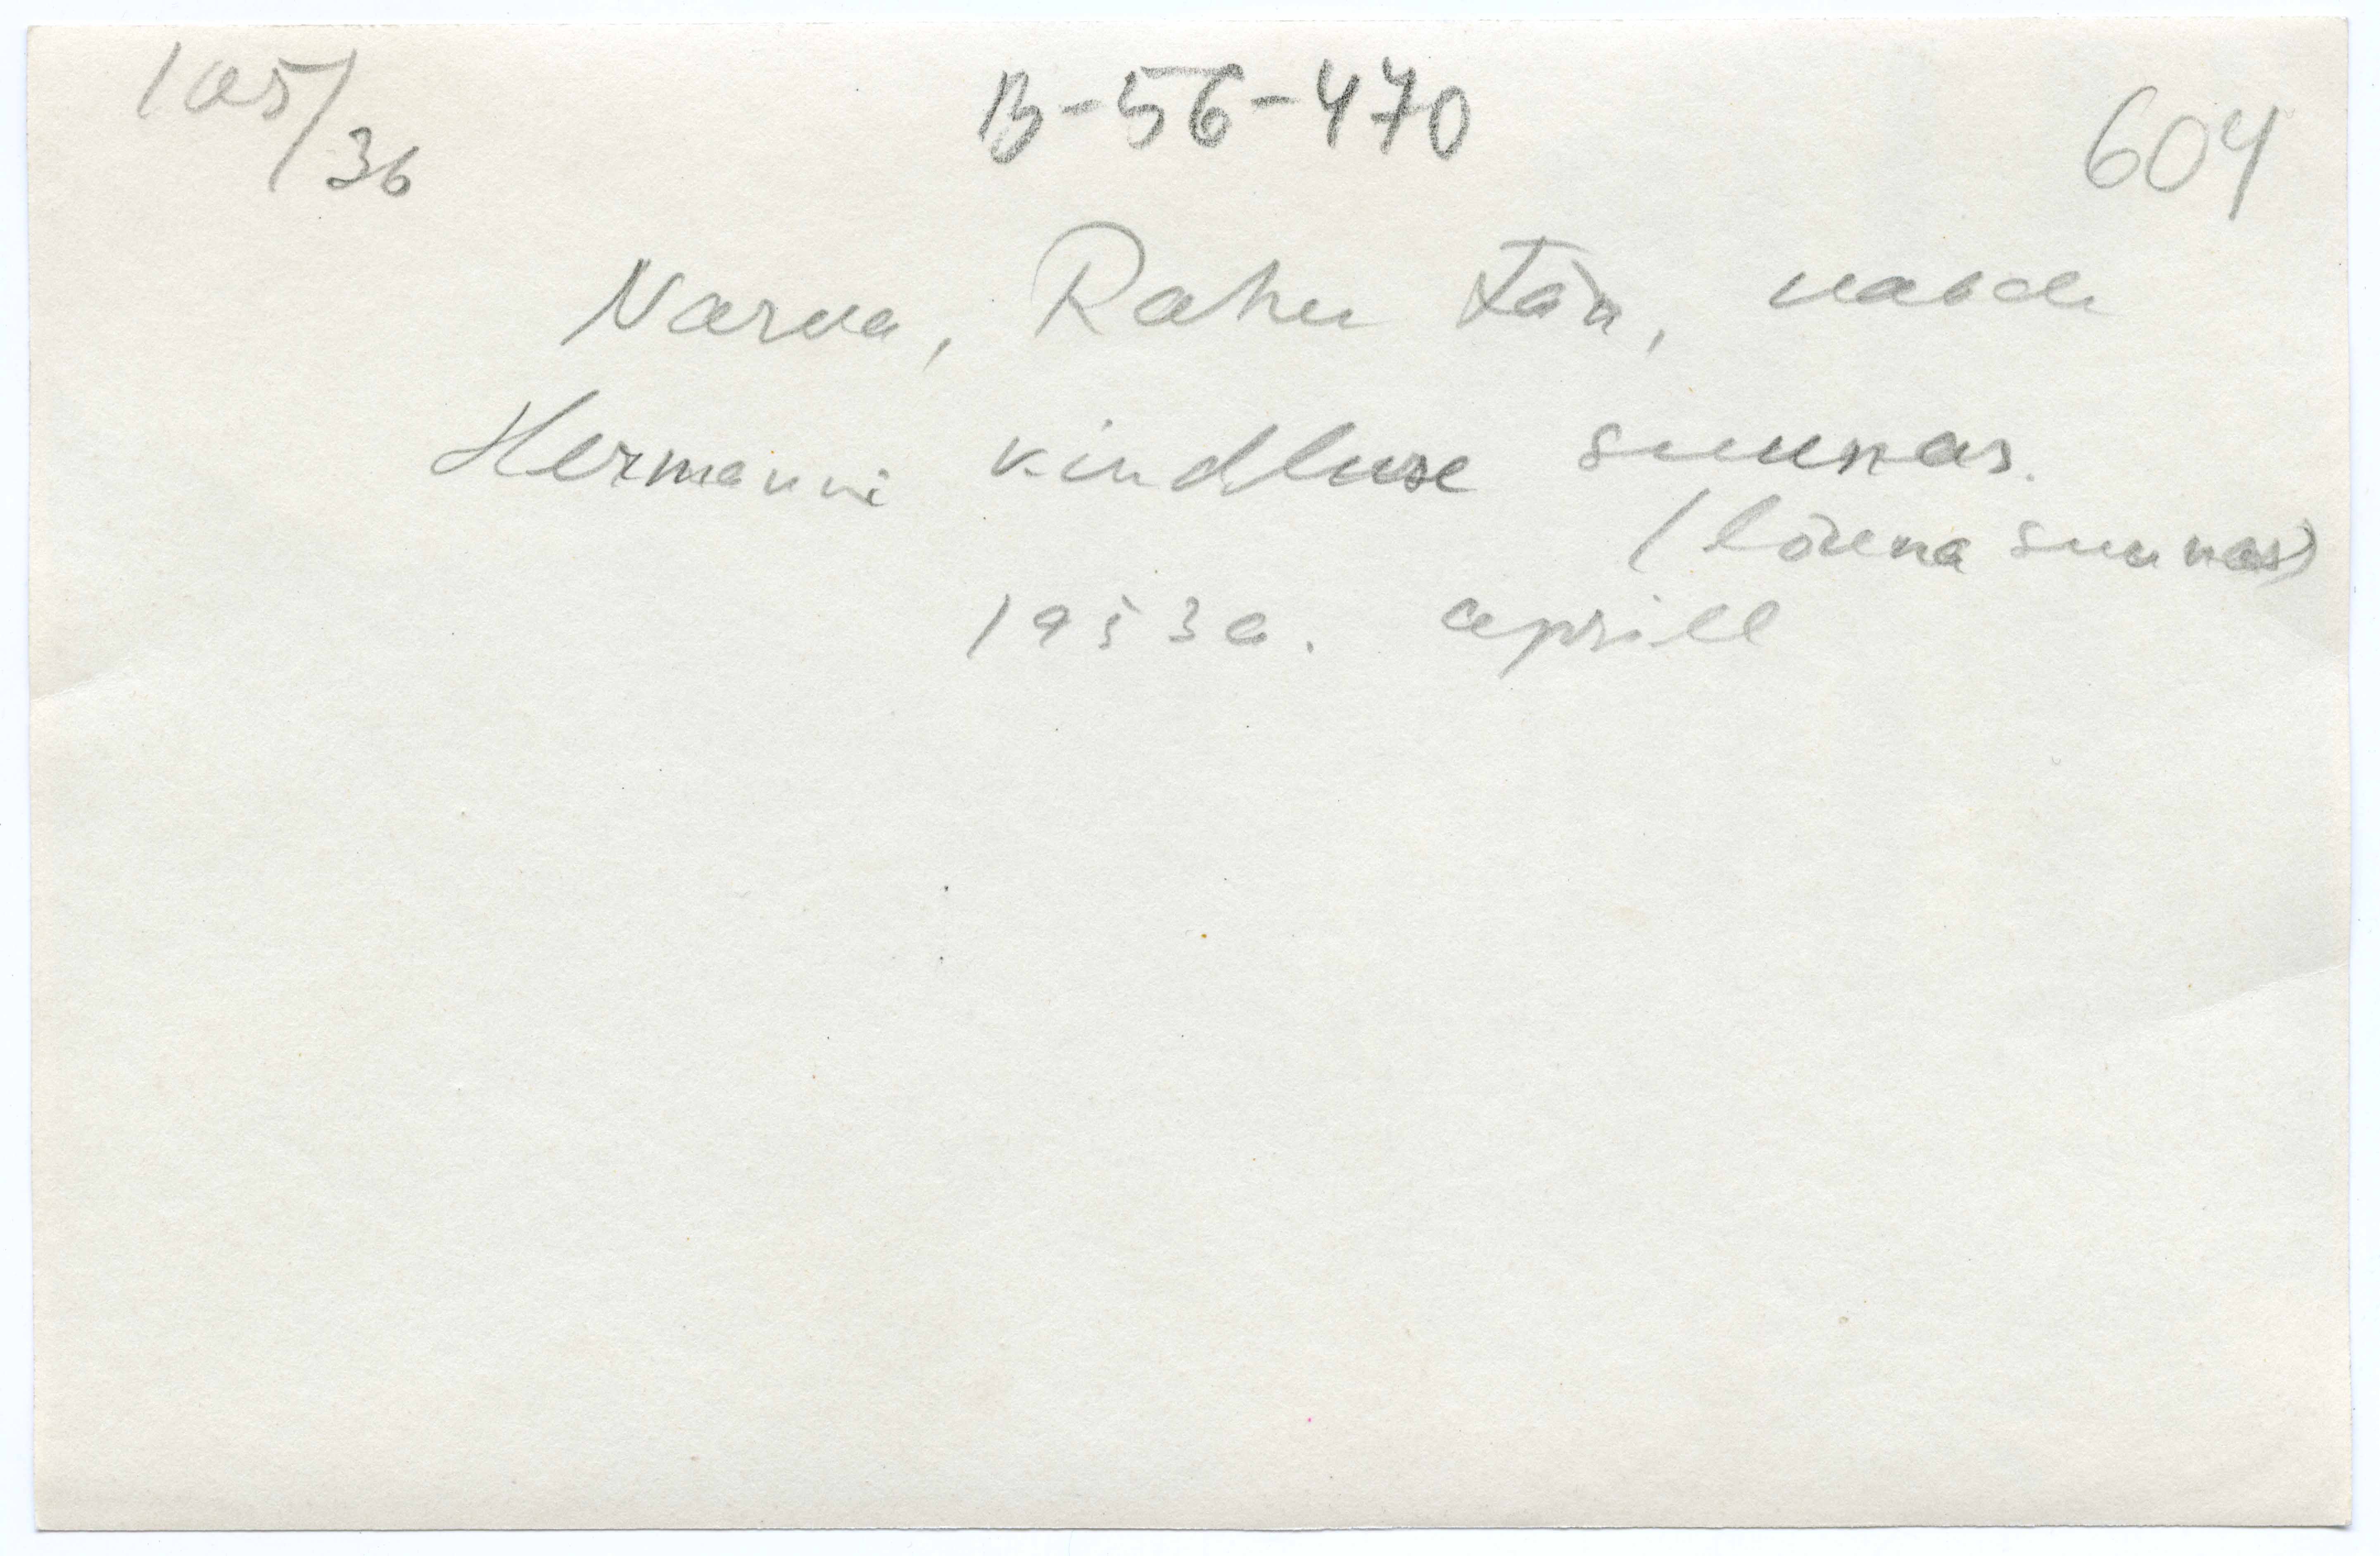 105/36
B-56-470
604
Narva, Rahu tän, vaade
Hermanni kindluse suunas.
(lõuna suunas)
1953 a. aprill